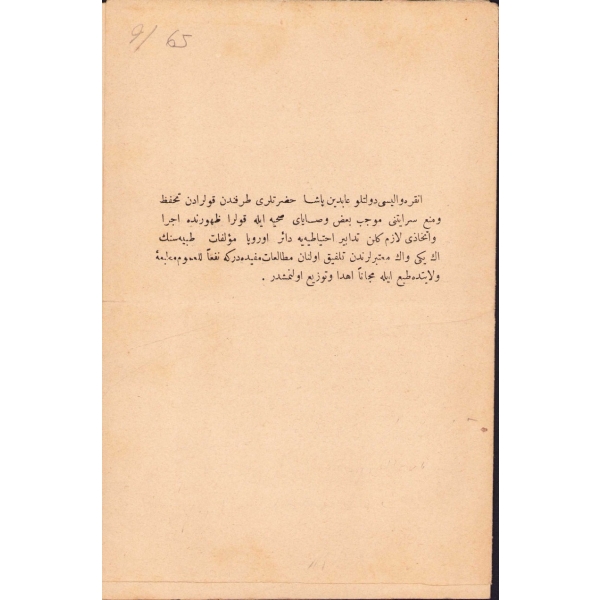 9/ 65
انقره والیسی دولتلو عابدین پاشا حضرتلری طرفندن قولرادن تحفظ
ومنع سرایتنی موجب بعض وصایای صحیه ایله قولرا ظهورنده اجرا
واتخاذی لازم کلن تدابیر احتیاطیه‌یه دائر اوروپا مؤلفات طبیه‌سنك
اك یکی واك معتبرلرندن تلفیق اولنان مطالعات مفیده‌درکه نفعاً للعموم مطبعهٔ
ولایتده طبع ایله مجاناً اهدا وتوزیع اولنمشدر .